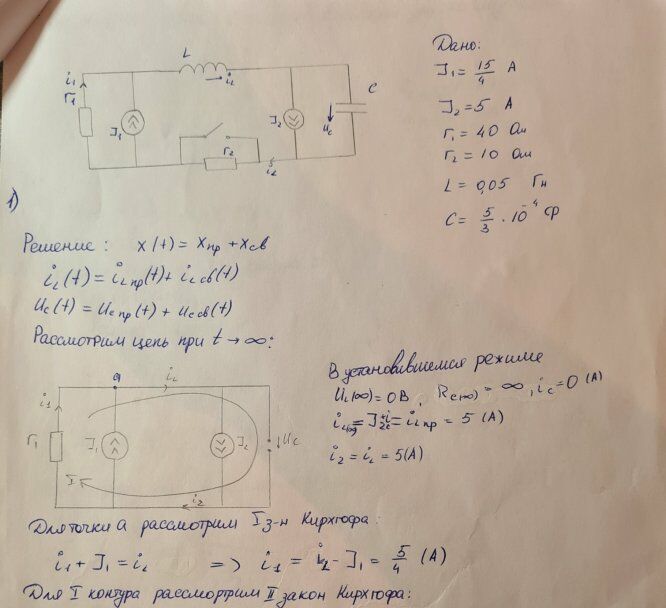 L
i₁
r₁
J₁
iL
J₂
Uc
C
r₂
i₂
Дано:
J₁ = 15/4 А
J₂ = 5 А
r₁ = 40 Ом
r₂ = 10 Ом
L = 0,05 Гн
C = 5/3 · 10⁻⁴ ф
1)
Решение: x(t) = xпр + xсв
iL(t) = iLпр(t) + iLсв(t)
Uc(t) = Ucпр(t) + Ucсв(t)
Рассмотрим цепь при t → ∞:
a
iL
i₁
r₁
J₁
J₂
Uc
I
i₂
В установившемся режиме
UL(∞) = 0 В, Rc(∞) = ∞, ic = 0 (А)
= iLпр = 5 (А)
i₂ = iL = 5 (А)
Для точки a рассмотрим I з-н Кирхгофа:
i₁ + J₁ = iL => i₁ = iL - J₁ = 5/4 (А)
Для I контура рассмортрим II закон Кирхгофа: